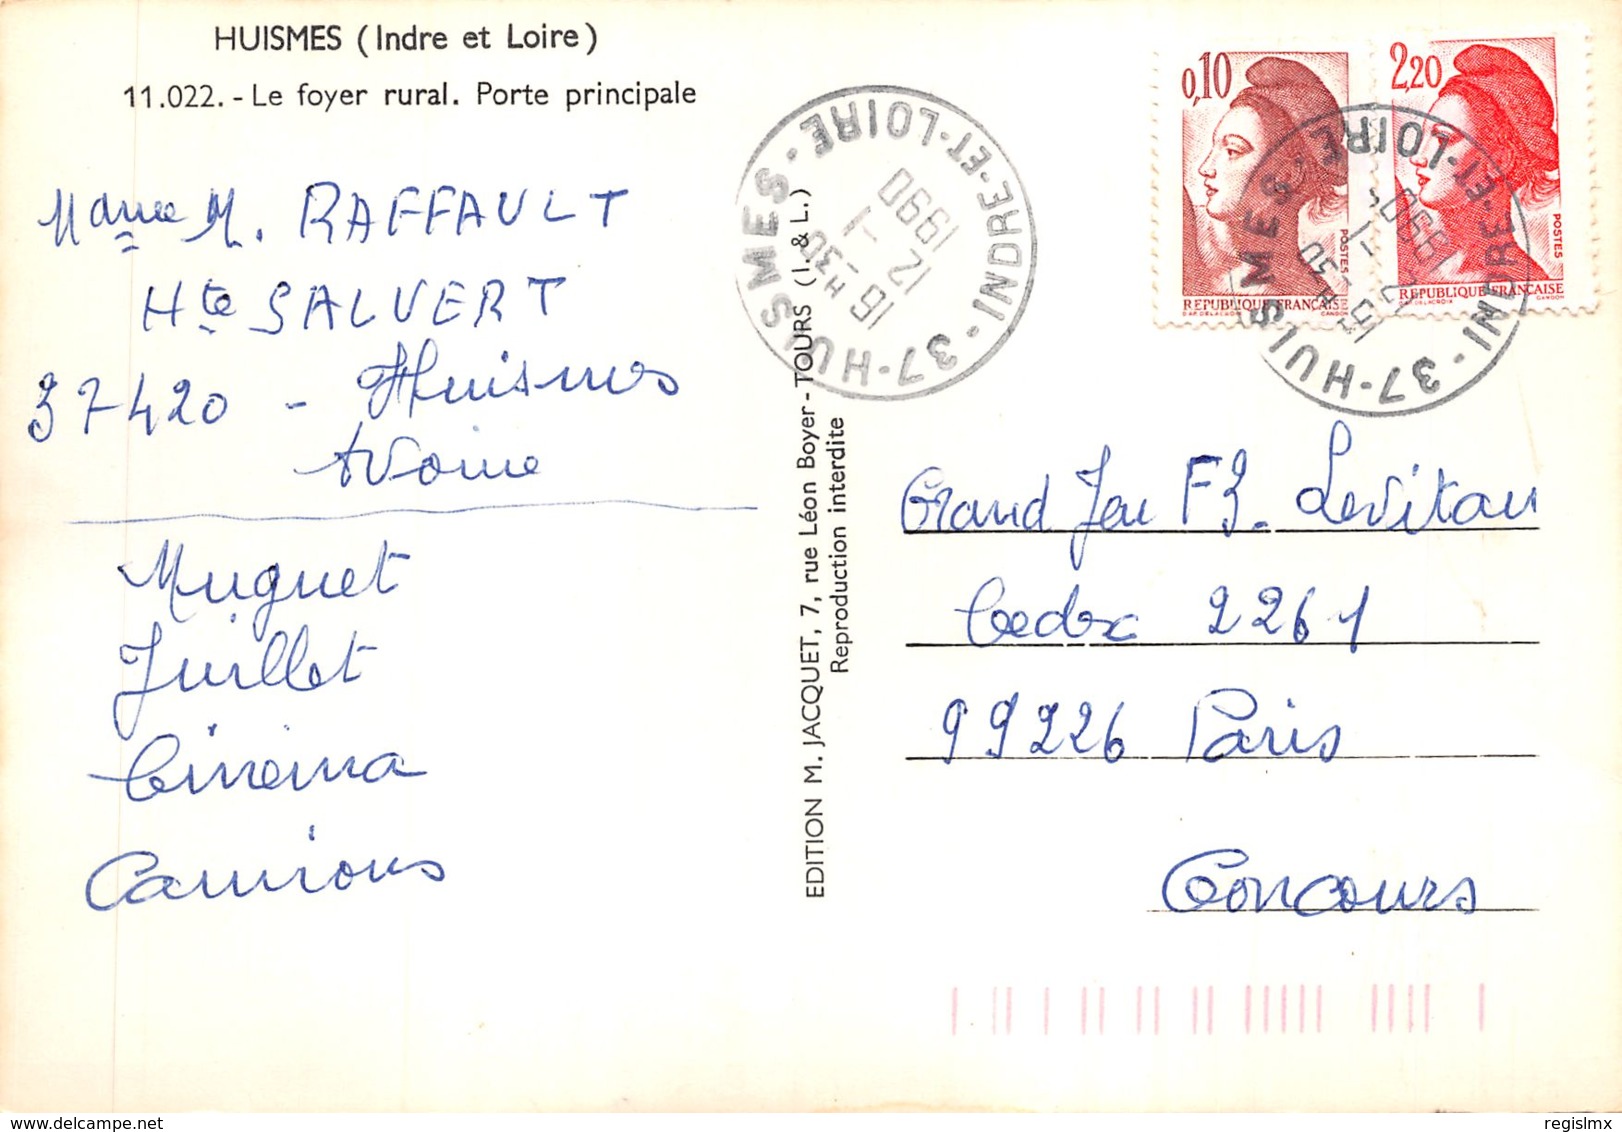 HUISMES (Indre et Loire)
11.022. - Le foyer rural. Porte principale
M. RAFFAULT
Hte SALVERT
37420 - Huismes
Avoine
Muguet
Juillet
Cinema
Camions
EDITION M. JACQUET, 7, rue Léon Boyer - TOURS (I. & L.)
Reproduction interdite
37-HUISMES · INDRE-ET-LOIRE
16 H 30
12 - 1
1990
0,10
POSTES
REPUBLIQUE FRANÇAISE
D'AP. DELACROIX GANDON
2,20
POSTES
REPUBLIQUE FRANÇAISE
D'AP. DELACROIX GANDON
37-HUISMES INDRE-ET-LOIRE
1990
Grand Jeu F3. Levitan
Cedex 2261
99226 Paris
Concours
https://www.delcampe.net
regislmx